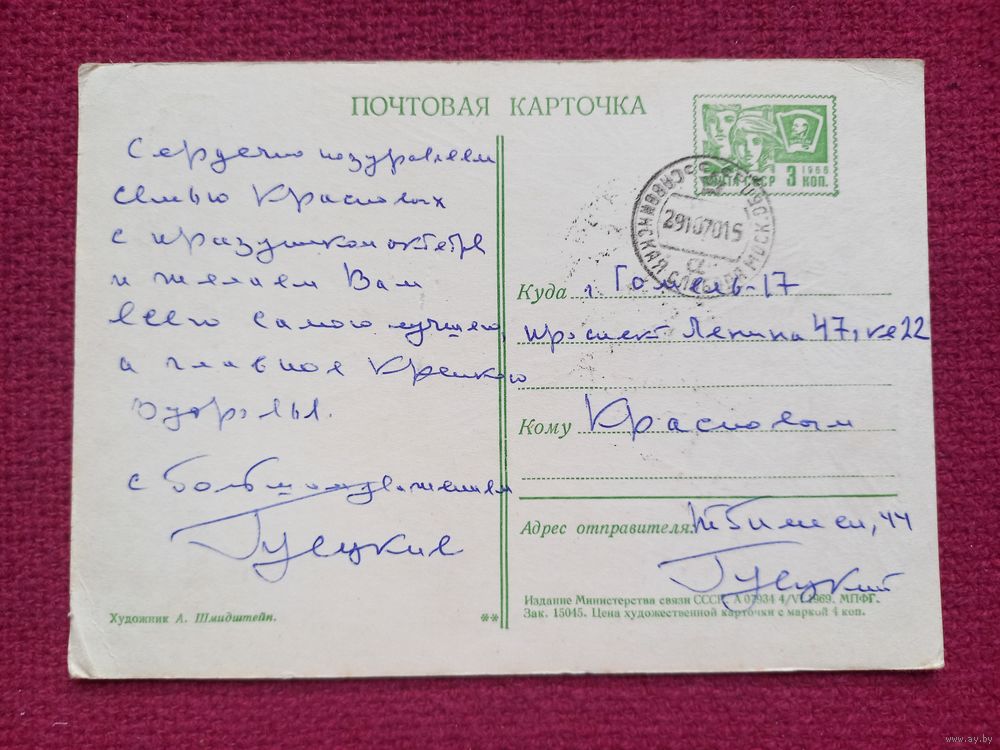 ПОЧТОВАЯ КАРТОЧКА
1966
ПОЧТА СССР 3 КОП.
29107015
Сердечно поздравляем
семью Красновых
с праздником октября
и желаем Вам
всего самого лучшего,
а главное крепкого
здоровья.
с большим уважением
Гулецкие
Художник А. Шмидштейн.
**
Куда г. Гомель-17
проспект Ленина 47, кв 22
Кому Красновым
Адрес отправителя. 44
Гулецкий
Издание Министерства связи СССР. А 07934 4/VI 1969. МПФГ.
Зак. 15045. Цена художественной карточки с маркой 4 коп.
www.ay.by